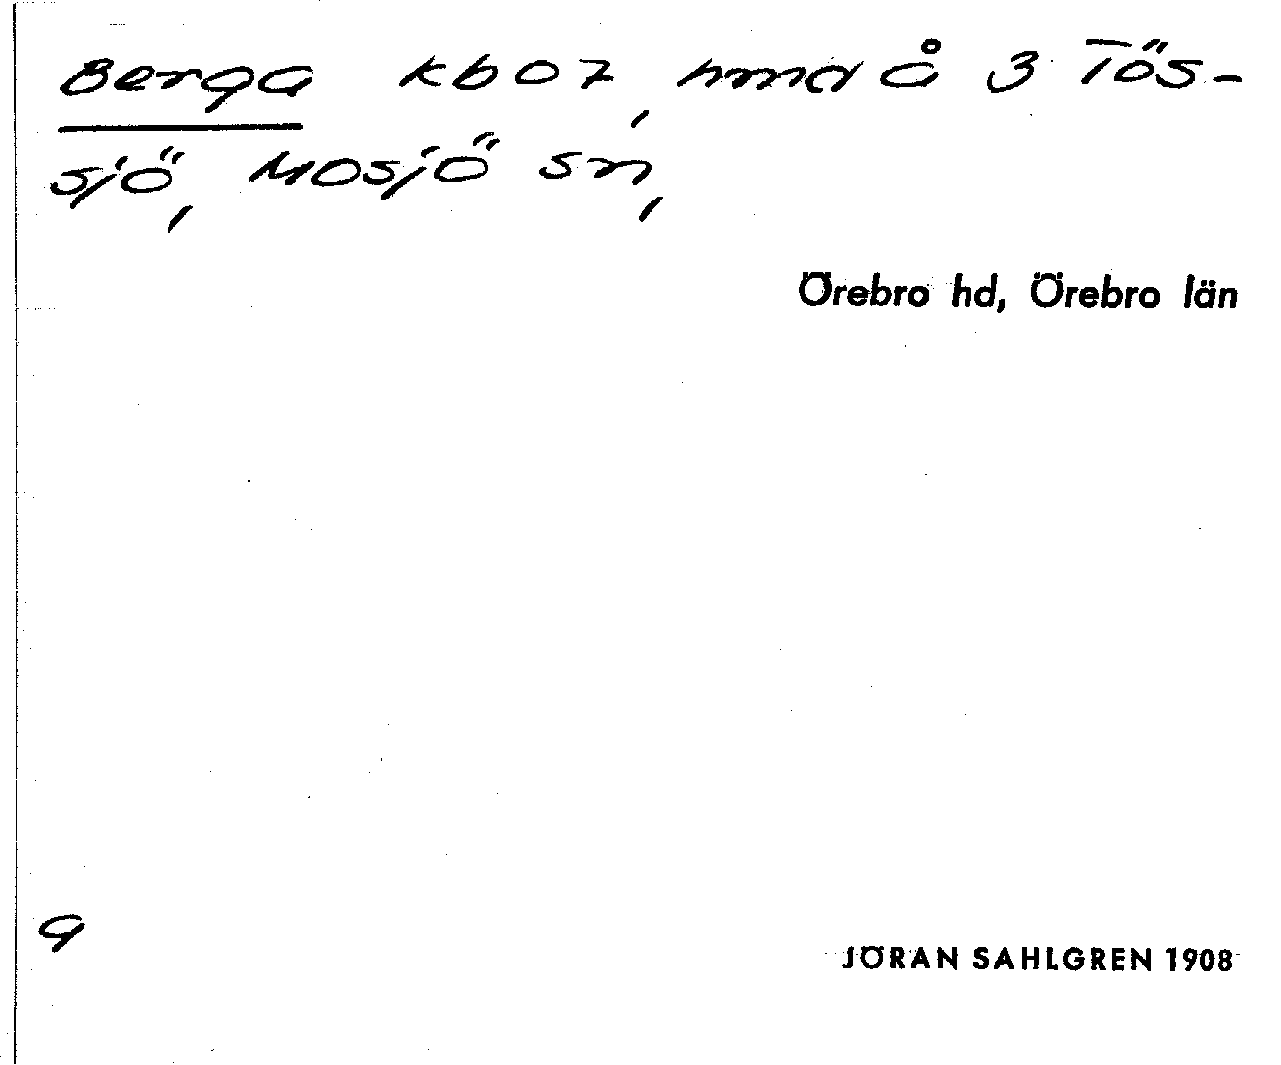 Berga kbo7, hmd å 3 Tös-
sjö, Mosjö sn,
Örebro hd, Örebro län
9
JÖRAN SAHLGREN 1908